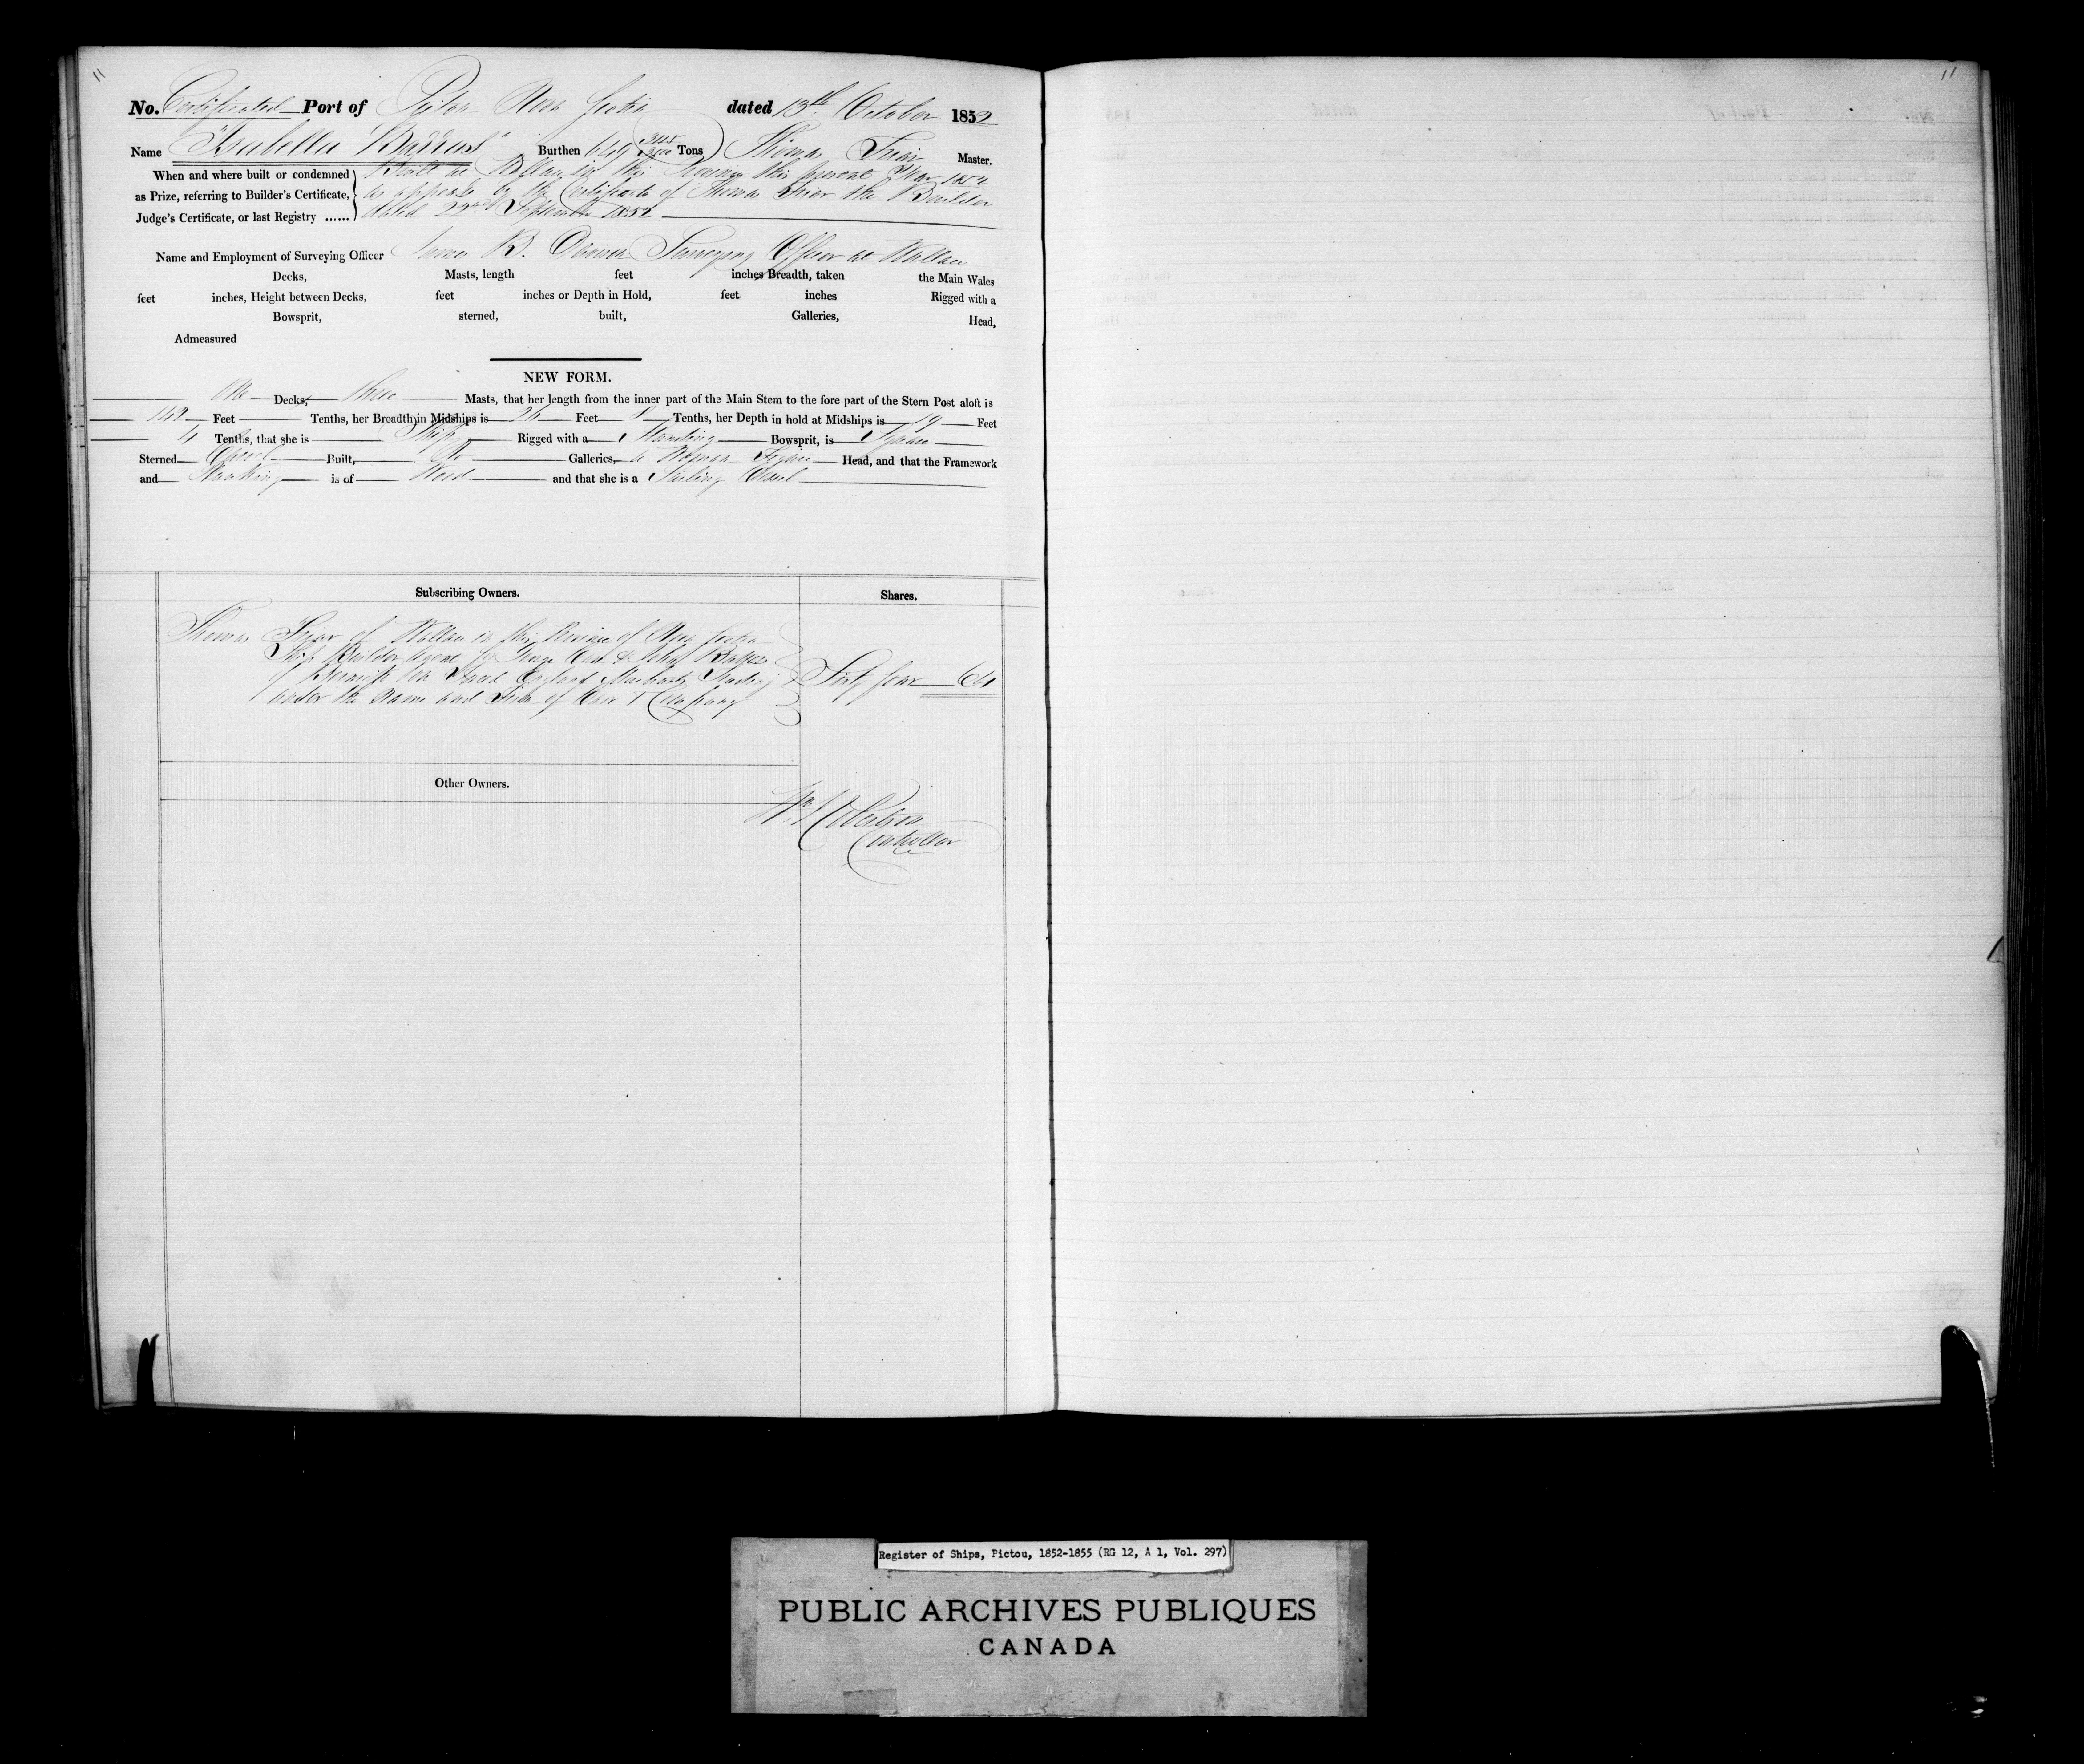 11
11
No. Certificated Port of Pictou Nova Scotia dated 13th October 1852
Name "Isabella Barras" Burthen 649 Tons Thomas Friar Master.
When and where built or condemned as Prize, referring to Builder's Certificate, Judge's Certificate, or last Registry ......
Built at Wallace in this Province this present Year 1852
as appears by the Certificate of Thomas Friar the Builder
dated 22nd September 1852
Name and Employment of Surveying Officer James B. Davison Surveying Officer at Wallace
Decks, Masts, length feet inches Breadth, taken the Main Wales
feet inches, Height between Decks, feet inches or Depth in Hold, feet inches Rigged with a
Bowsprit, sterned, built, Galleries, Head,
Admeasured
NEW FORM.
One Decks, three Masts, that her length from the inner part of the Main Stem to the fore part of the Stern Post aloft is
142 Feet Tenths, her Breadth in Midships is 26 Feet 8 Tenths, her Depth in hold at Midships is 19 Feet
4 Tenths, that she is Ship Rigged with a Standing Bowsprit, is Square
Sterned Carvel Built, No Galleries, a Woman Figure Head, and that the Framework
and Planking is of Wood and that she is a Sailing Vessel
Subscribing Owners. Shares.
Thomas Friar of Wallace in this Province of Nova Scotia
Ship Builder Agent for George &
of Berwick upon Tweed England Merchants Trading
under the Name and Firm of Company
Sixty four 64
Other Owners.
Wm Robertson
Controller
Register of Ships, Pictou, 1852-1855 (RG 12, A 1, Vol. 297)
PUBLIC ARCHIVES PUBLIQUES
CANADA